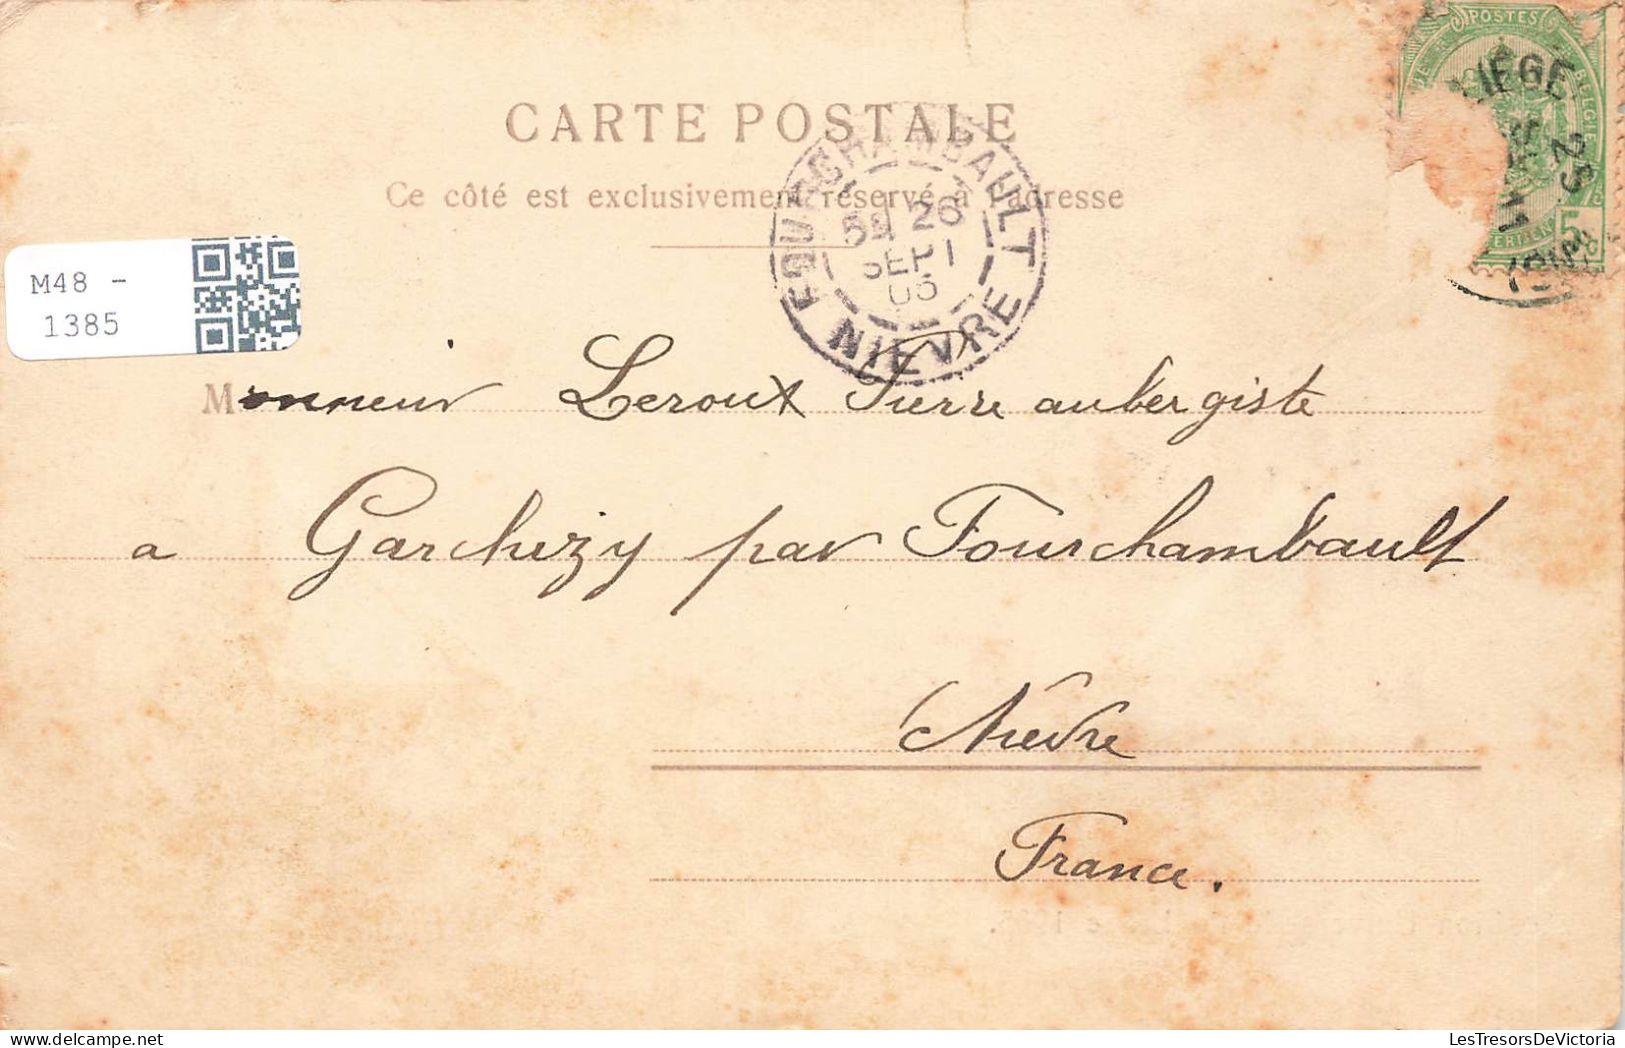 CARTE POSTALE
Ce côté est exclusivement réservé à l'adresse
M48 -
1385
FOURCHAMBAULT
5E 26
SEPT
05
NIEVRE
POSTES
BELGIE
5c
LIÉGE
25
Monsieur Leroux Pierre aubergiste
a Garchizy par Fourchambault
Nièvre
France.
LesTresorsDeVictoria